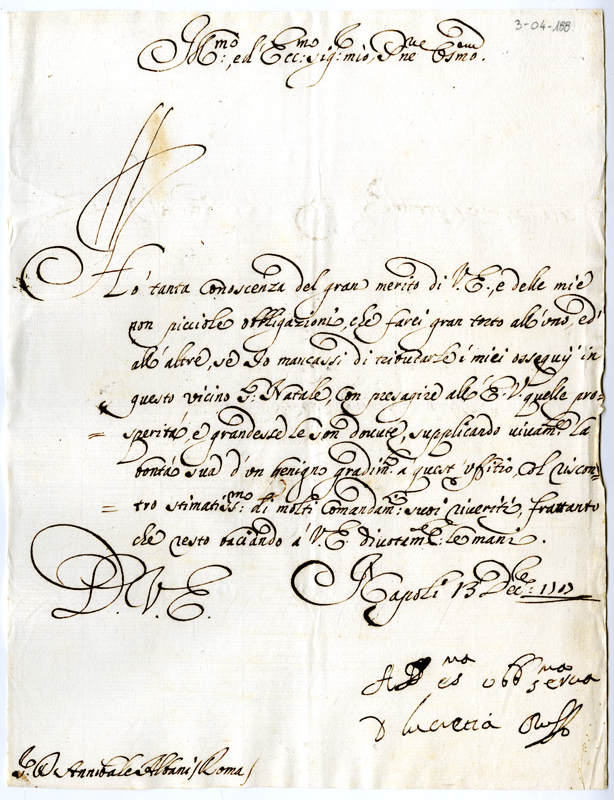 3-04-188
Ill:mo, ed Ecc:mo Sig: mio, Pne Colmo.
Hò tanta conoscenza del gran merito di V.E., e delle mie
non picciole obbligazioni, che farei gran torto all'uno, ed
all'altre, se Io mancassi di tributarle i miei ossequij in
questo vicino S. Natale, con presagire all'E.V. quelle pro=
= sperità, e grandezze le son dovute, supplicando vivam:te la
bontà sua d'un benigno gradim:to a quest'uffitio, col riscon=
= tro stimatiss:mo di molti comandam:ti suoi riveriti, frattanto
che resto baciando à V.E. divotam:te le mani.
D. V. E. Napoli 13 Dec:bre 1707
ma obb ma serva
D Lucretia Russo
D Annibale Albani (Roma)